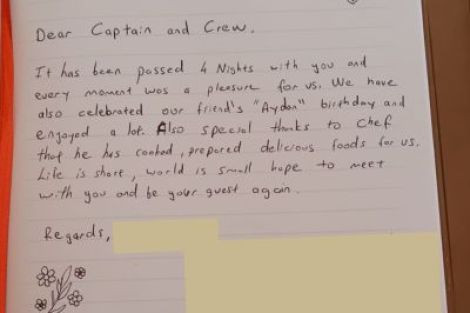 Dear Captain and Crew.
It has been passed 4 Nights with you and
every moment was a pleasure for us. We have
also celebrated our friend's "Aydan" birthday and
engoyed a lot. Also special thanks to chef
that he has cooked, prepared delicious foods for us.
Life is short, world is small hope to meet
with you and be your guest again.
Regards,